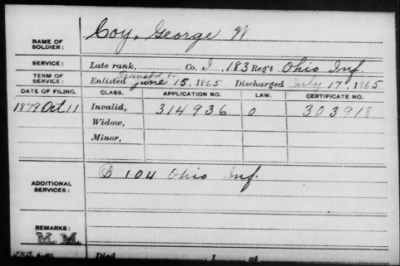 NAME OF SOLDIER: Coy, George W
SERVICE: Late rank, Co. I, 183 Reg't Ohio Inf.
TERM OF SERVICE: Enlisted June 15, 1865 Discharged July 17, 1865
DATE OF FILING. CLASS. APPLICATION NO. LAW. CERTIFICATE NO.
1879 Oct 11 Invalid, 314936 0 303918
Widow,
Minor,
ADDITIONAL SERVICES: 104 Ohio Inf.
REMARKS: